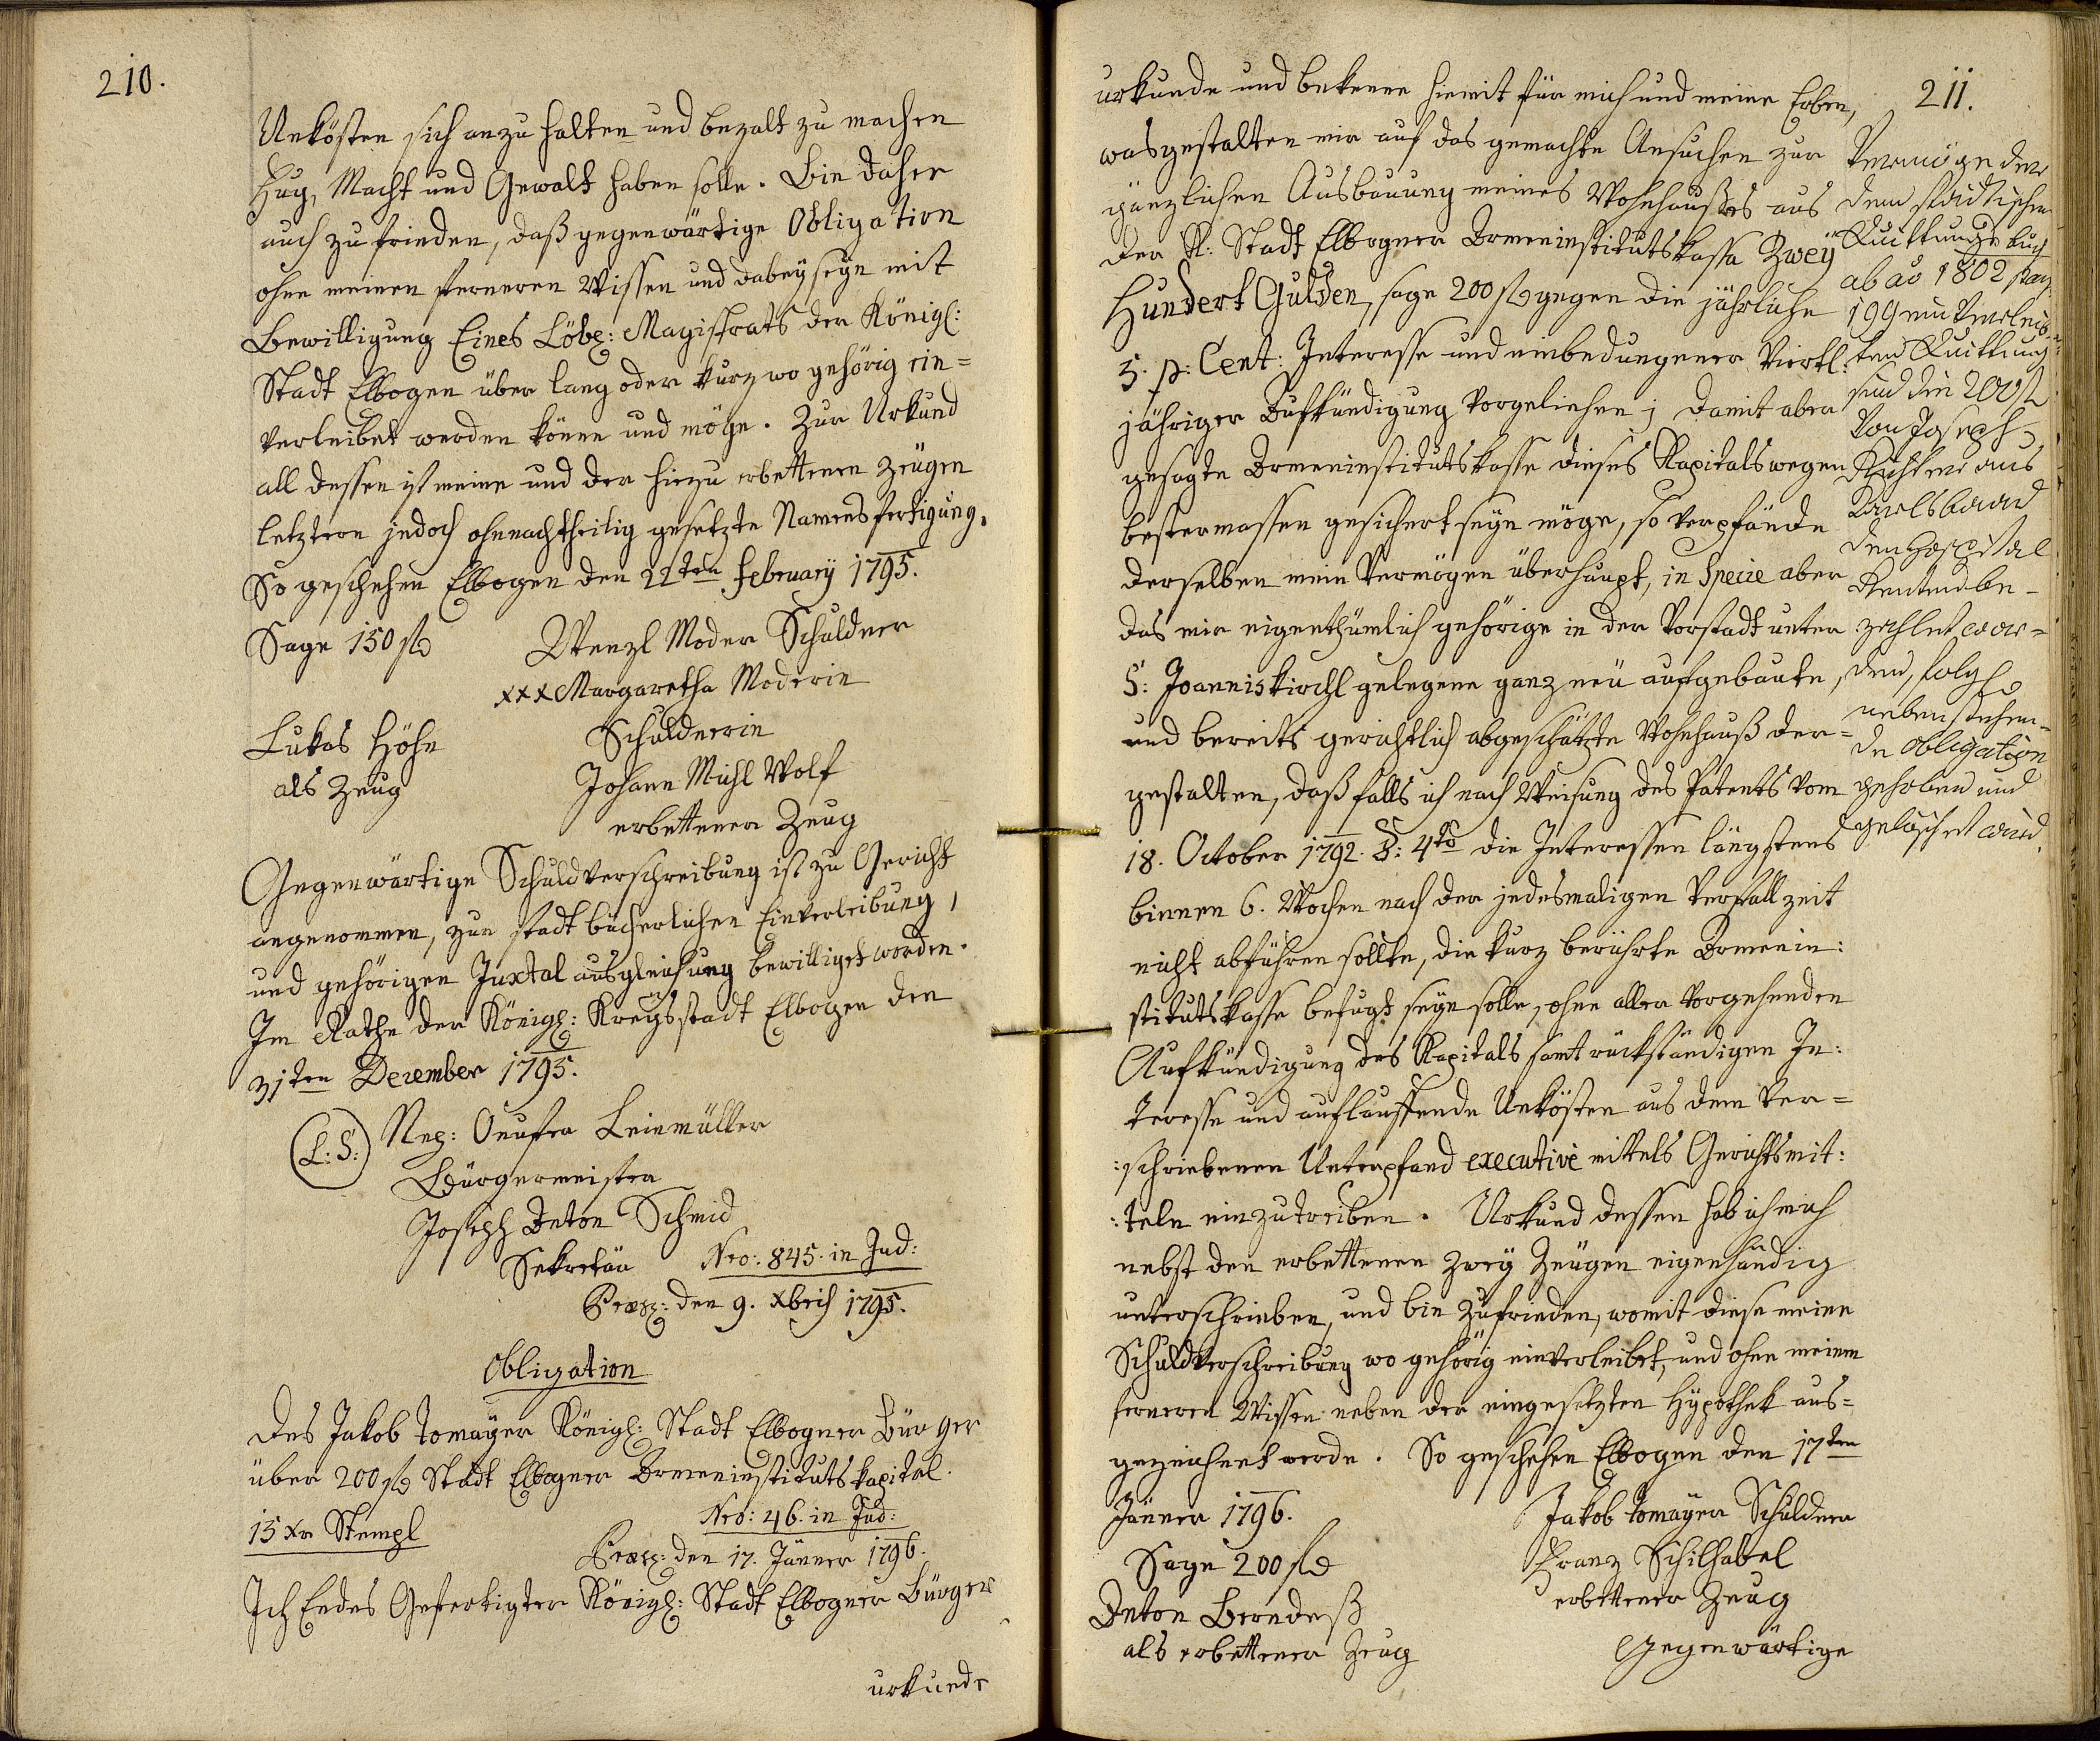 210.
Unkösten sich anzu halten und bezalt zu machen
Fug, Macht und Gewalt haben solle. Bin daher
auch zu frieden, daß gegenwärtige Obligation
ohne meinen ferneren Wissen und dabeyseyn mit
Bewilligung Eines Löbl: Magistrats der Königl:
Stadt Elbogen über lang oder kurz wo gehörig ein=
verleibet werden könne und möge. Zur Urkund
all dessen ist meine und der hiezu erbettenen Zeügen
letztern jedoch ohnnachtheilig gesetzte Namensfertigung.
So geschehen Elbogen den 22ten February 1795.
Sage 150 fl
Wenzl Moder Schuldner
xxx Margaretha Moderin
Schuldnerin
Lukas Höhn
als Zeug
Johann Michl Wolf
erbettener Zeug
Gegenwärtige Schuldverschreibung ist zu Gericht
angenommen, zur stadt bücherlichen Einverleibung,
und gehörigen Juxtal ausgleichung bewilliget worden.
Im Rathe der Königl: Kreysstadt Elbogen den
31ten December 1795.
(L.S.) Nep: Leinmüller
Bürgermeister
Joseph Anton Schmid
Sekretär
Nro: 845. in Jud:
Præs: den 9. Xbris 1795.
Obligation
Des Jakob Tomayer Königl: Stadt Elbogner Bürger
über 200 fl Stadt Elbogner Armeninstitutskapital.
15 Xr Stempl
Nro: 46. in Jud:
Præs: den 17. Jänner 1796.
Ich Endes Gefertigter Königl: Stadt Elbogner Bürger
urkunde
211.
urkunde und bekenne hiemit für mich und meine Erben,
wasgestalten mir auf das gemachte Ansuchen zur
gänzlichen Ausbauung meines Wohnhaußes aus
der K: Stadt Elbogner Armeninstitutskassa Zwey
Hundert Gulden, sage 200 fl gegen die jährliche
5. p: Cent: Interesse und einbedungener Viertl:
jähriger Aufkündigung vorgeliehen; Damit aber
gesagte Armeninstitutskasse dieses Kapitals wegen
bestermassen gesichert seyn möge, so verpfände
derselben mein Vermögen überhaupt, in Specie aber
das mir eigenthümlich gehörige in der Vorstadt unter
S: Joanniskirchl gelegene ganz neü aufgebaute,
und bereits gerichtlich abgeschätzte Wohnhauß der=
gestalten, daß falls ich nach Weisung des Patents vom
18. October 1792. §: 4to die Interessen längstens
binnen 6. Wochen nach der jedesmaligen Verfallzeit
nicht abführen sollte, die kurz berührte Armenin:
stitutskasse befugt seyn solle, ohne aller vorgehenden
Aufkündigung das Kapitals samt rückständigen In:
teresse und auflauffende Unkösten aus dem Ver=
:schriebenen Unterpfand executivè mittels Gerichtsmit:
:teln einzutreiben. Urkund dessen hab ich mich
nebst den erbettenen zwey Zeügen eigenhändig
unterschrieben, und bin zufrieden, womit diese meine
Schuldverschreibung wo gehörig einverleibet, und ohne meinem
ferneren Wissen neben der eingesetzten Hypothek aus=
gezeichnet werde. So geschehen Elbogen den 17ten
Jänner 1796.
Jakob Tomayer Schuldner
Sage 200 fl
Franz Schilhabel
erbettener Zeug
Anton Berndeß
als erbettener Zeug
Gegenwärtige
Vermöge der
dem städtischen
Quittungsbuch
ab ao 1802 pag
199 einverleib=
ten Quittung
sind die 200 fl
von Joseph
Richter aus
Karlsbaad
den Hospital
Renten be=
zahlet wor=
den, folgl
nebenstehen=
de Obligation
gehoben und
gelöschet wird.